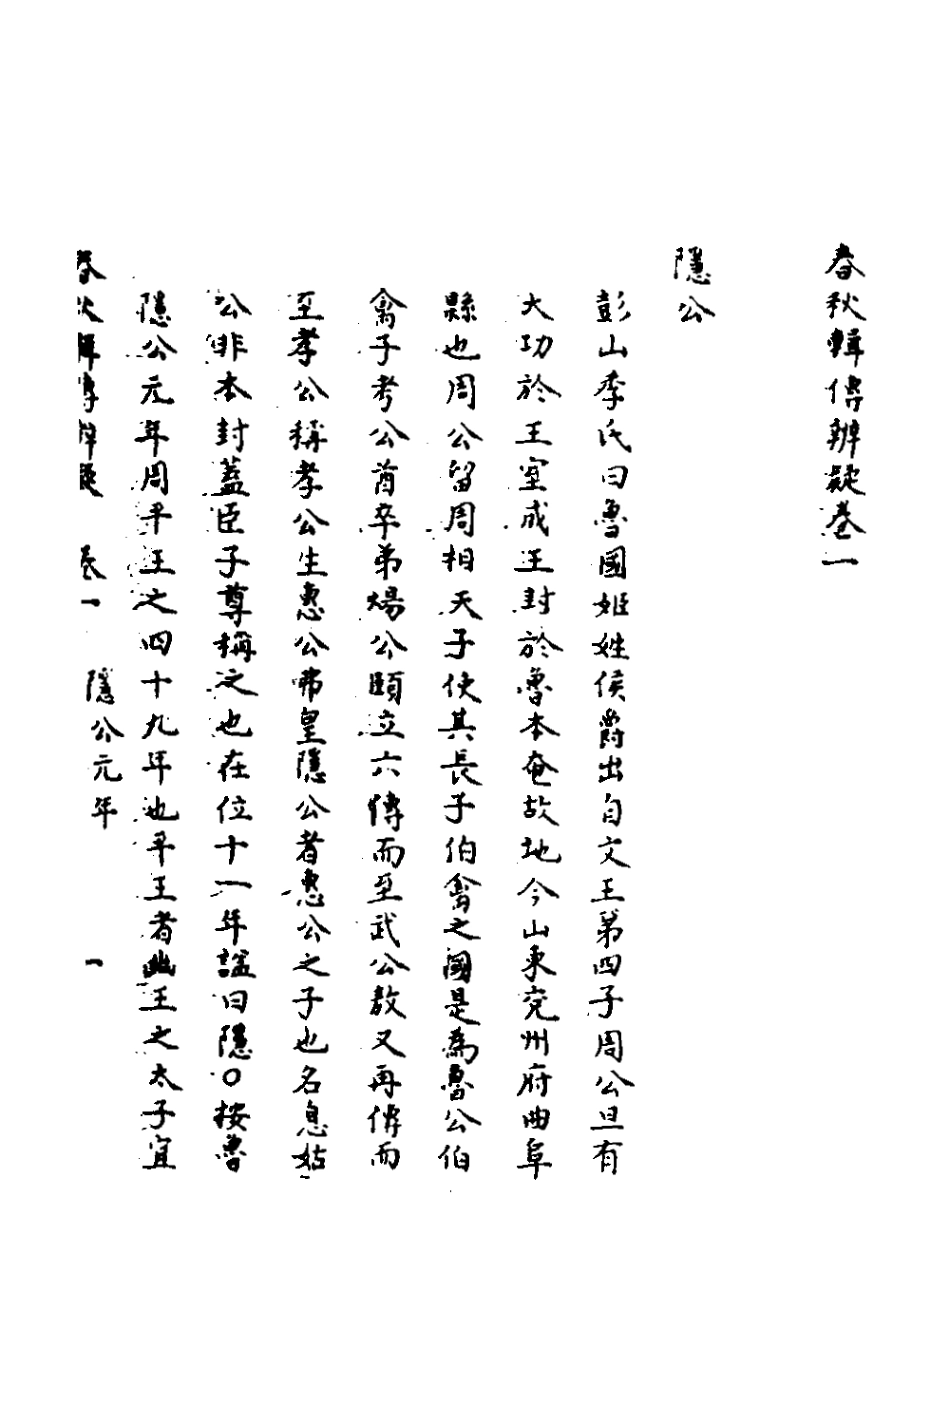 春秋輯傳辨疑卷一
隱公
彭山季氏曰魯國姬姓侯爵出自文王第四子周公旦有
大功於王室成王封於魯本奄故地今山東兗州府曲阜
縣也周公留周相天子使其長子伯禽之國是為魯公伯
禽子考公酋卒弟煬公頤立六傳而至武公敖又再傳而
至孝公稱孝公生惠公弗皇隱公者惠公之子也名息姑
公非本封蓋臣子尊稱之也在位十一年諡曰隱〇按魯
隱公元年周平王之四十九年也平王者幽王之太子宜
春秋輯傳辨疑 卷一 隱公元年 一